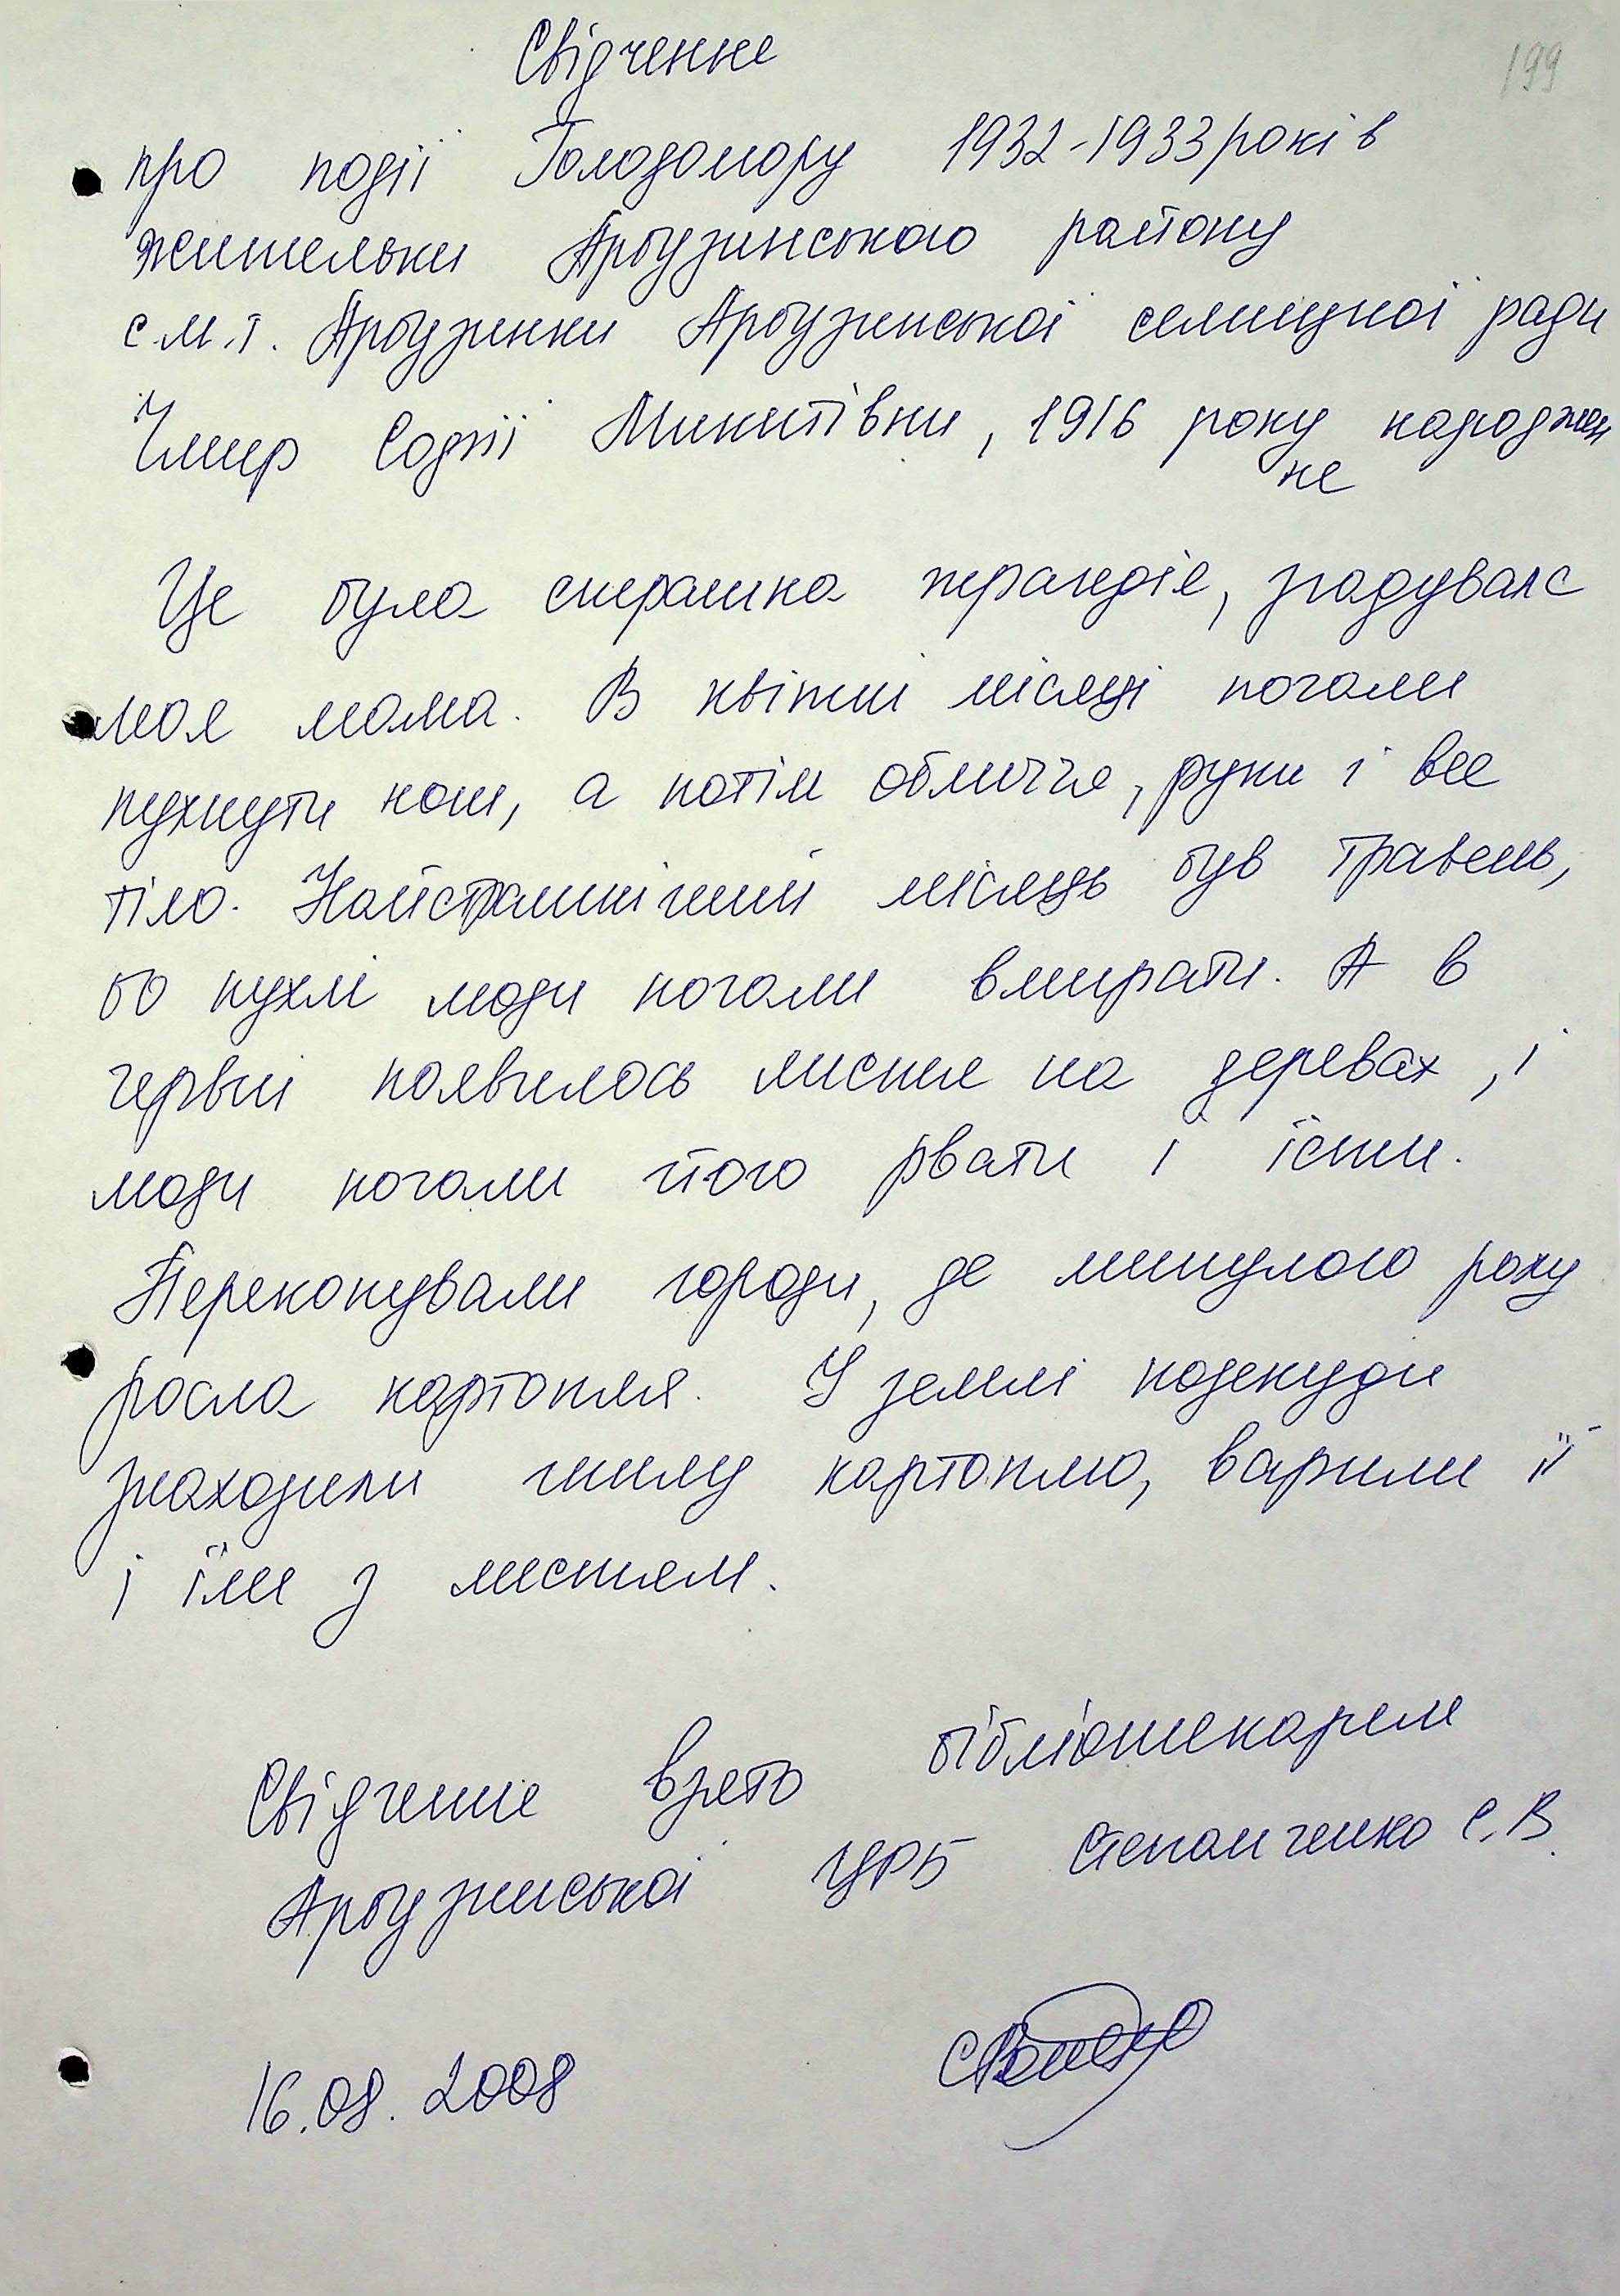 199
Свідчення
про події Голодомору 1932-1933 років
жительки Арбузинського району
с.м.т. Арбузинки Арбузинської селищної ради
Чмир Софії Микитівни, 1916 року народжен
ня
Це була страшна трагедія, згадувала
моя мама. В квітні місяці почали
пухнути ноги, а потім обличчя, руки і все
тіло. Найстрашніший місяць був травень,
бо пухлі люди почали вмирати. А в
червні появилось листя на деревах, і
люди почали його рвати і їсти.
Перекопували городи, де минулого року
росла картопля. У землі подекуди
знаходили гнилу картоплю, варили її
і їли з листям.
Свідчення взято бібліотекарем
Арбузинської ЦРБ Степанченко С.В.
16.08.2008